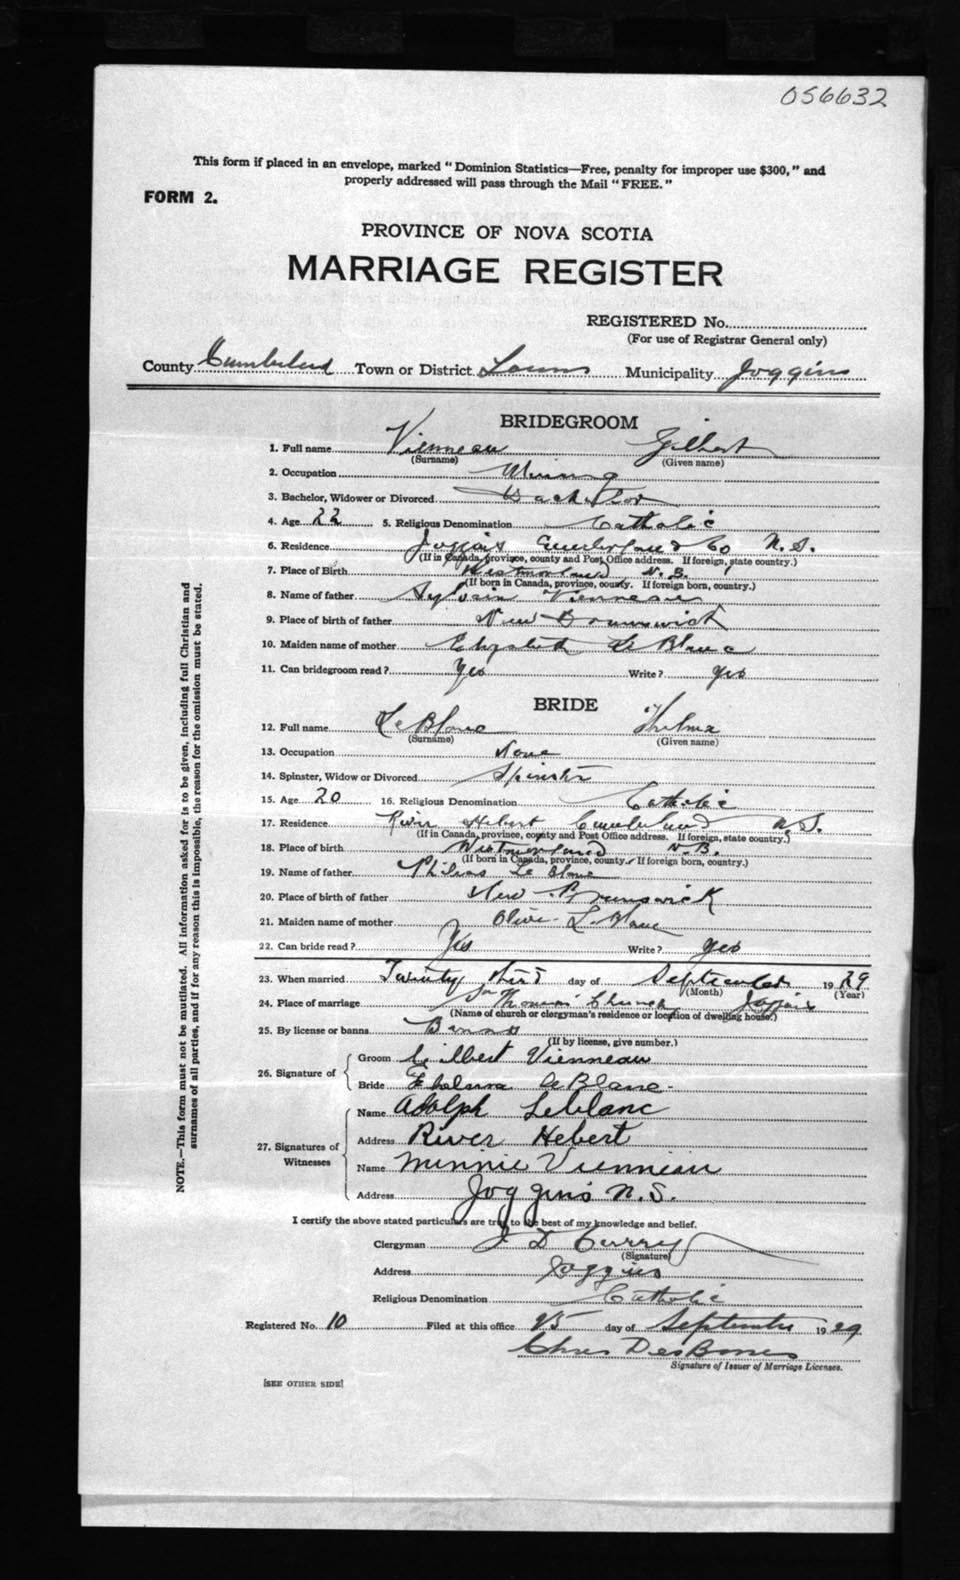 056632
This form if placed in an envelope, marked "Dominion Statistics—Free, penalty for improper use $300," and
properly addressed will pass through the Mail "FREE."
FORM 2.
PROVINCE OF NOVA SCOTIA
MARRIAGE REGISTER
REGISTERED No.
(For use of Registrar General only)
County Cumberland Town or District Municipality Joggins
BRIDEGROOM
1. Full name Vienneau Gilbert
(Surname) (Given name)
2. Occupation Mining
3. Bachelor, Widower or Divorced Bachelor
4. Age 22 5. Religious Denomination Catholic
6. Residence Joggins Cumberland Co N.S.
(If in Canada, province, county and Post Office address. If foreign, state country.)
7. Place of Birth Westmorland N.B.
(If born in Canada, province, county. If foreign born, country.)
8. Name of father Sylvain Vienneau
9. Place of birth of father New Brunswick
10. Maiden name of mother Elizabeth LeBlanc
11. Can bridegroom read? Yes Write? yes
BRIDE
12. Full name LeBlanc Thelma
(Surname) (Given name)
13. Occupation None
14. Spinster, Widow or Divorced Spinster
15. Age 20 16. Religious Denomination Catholic
17. Residence River Hebert Cumberland N.S.
(If in Canada, province, county and Post Office address. If foreign, state country.)
18. Place of birth Westmorland N.B.
(If born in Canada, province, county. If foreign born, country.)
19. Name of father Philias Le Blanc
20. Place of birth of father New Brunswick
21. Maiden name of mother Olive LeBlanc
22. Can bride read? Yes Write? yes
23. When married Twenty third day of September 1929
(Month) (Year)
24. Place of marriage Thomas' Church Joggins
(Name of church or clergyman's residence or location of dwelling house.)
25. By license or banns Banns
(If by license, give number.)
26. Signature of
Groom Gilbert Vienneau
Bride Thelma LeBlanc
27. Signatures of Witnesses
Name Adolph Leblanc
Address River Hebert
Name Minnie Vienneau
Address Joggins N.S.
I certify the above stated particulars are true to the best of my knowledge and belief.
Clergyman J D Curry
(Signature)
Address Joggins
Religious Denomination Catholic
Registered No. 10 Filed at this office 25 day of September 1929
Chas DesBarres
Signature of Issuer of Marriage Licenses.
[SEE OTHER SIDE]
NOTE.—This form must not be mutilated. All information asked for is to be given, including full Christian and
surnames of all parties, and if for any reason this is impossible, the reason for the omission must be stated.